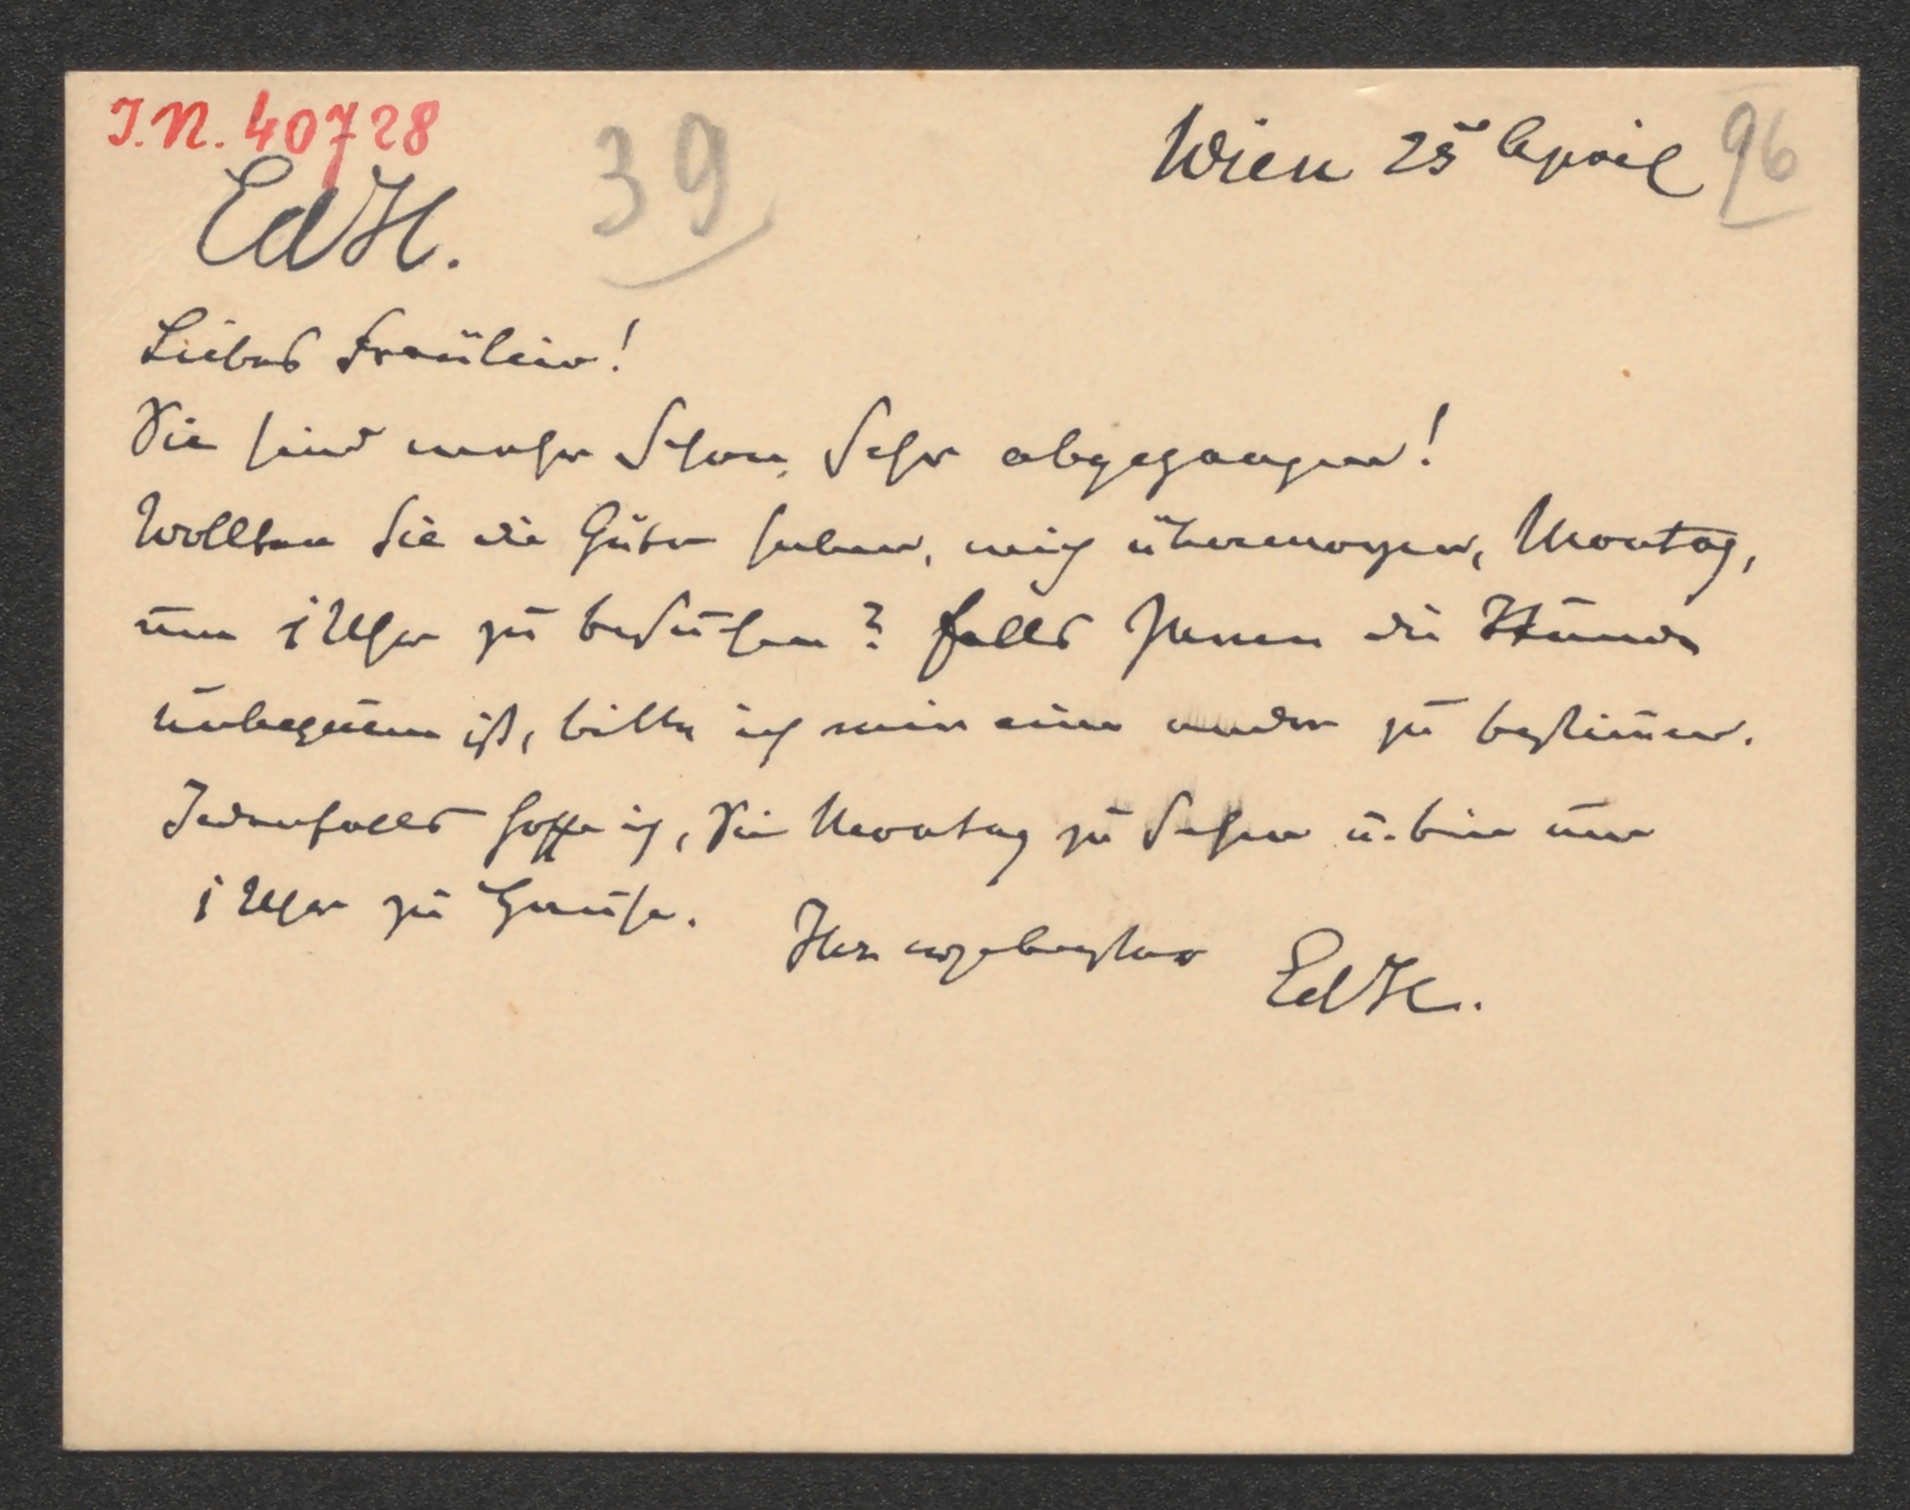 I.N. 40728
39
Wien 25 April 96
EdH.
Liebes Fräulein!
Sie sind schon sehr abgegangen!
Wollten Sie die Güte haben, mich übermorgen, Montag,
um 1 Uhr zu besuchen? Falls Ihnen die Stunde
unbequem ist, bitte ich mir eine andere zu bestim̄en.
Jedenfalls hoffe ich, Sie Montag zu sehen u. bin um
1 Uhr zu Hause.
Ihr ergebenster EdH.